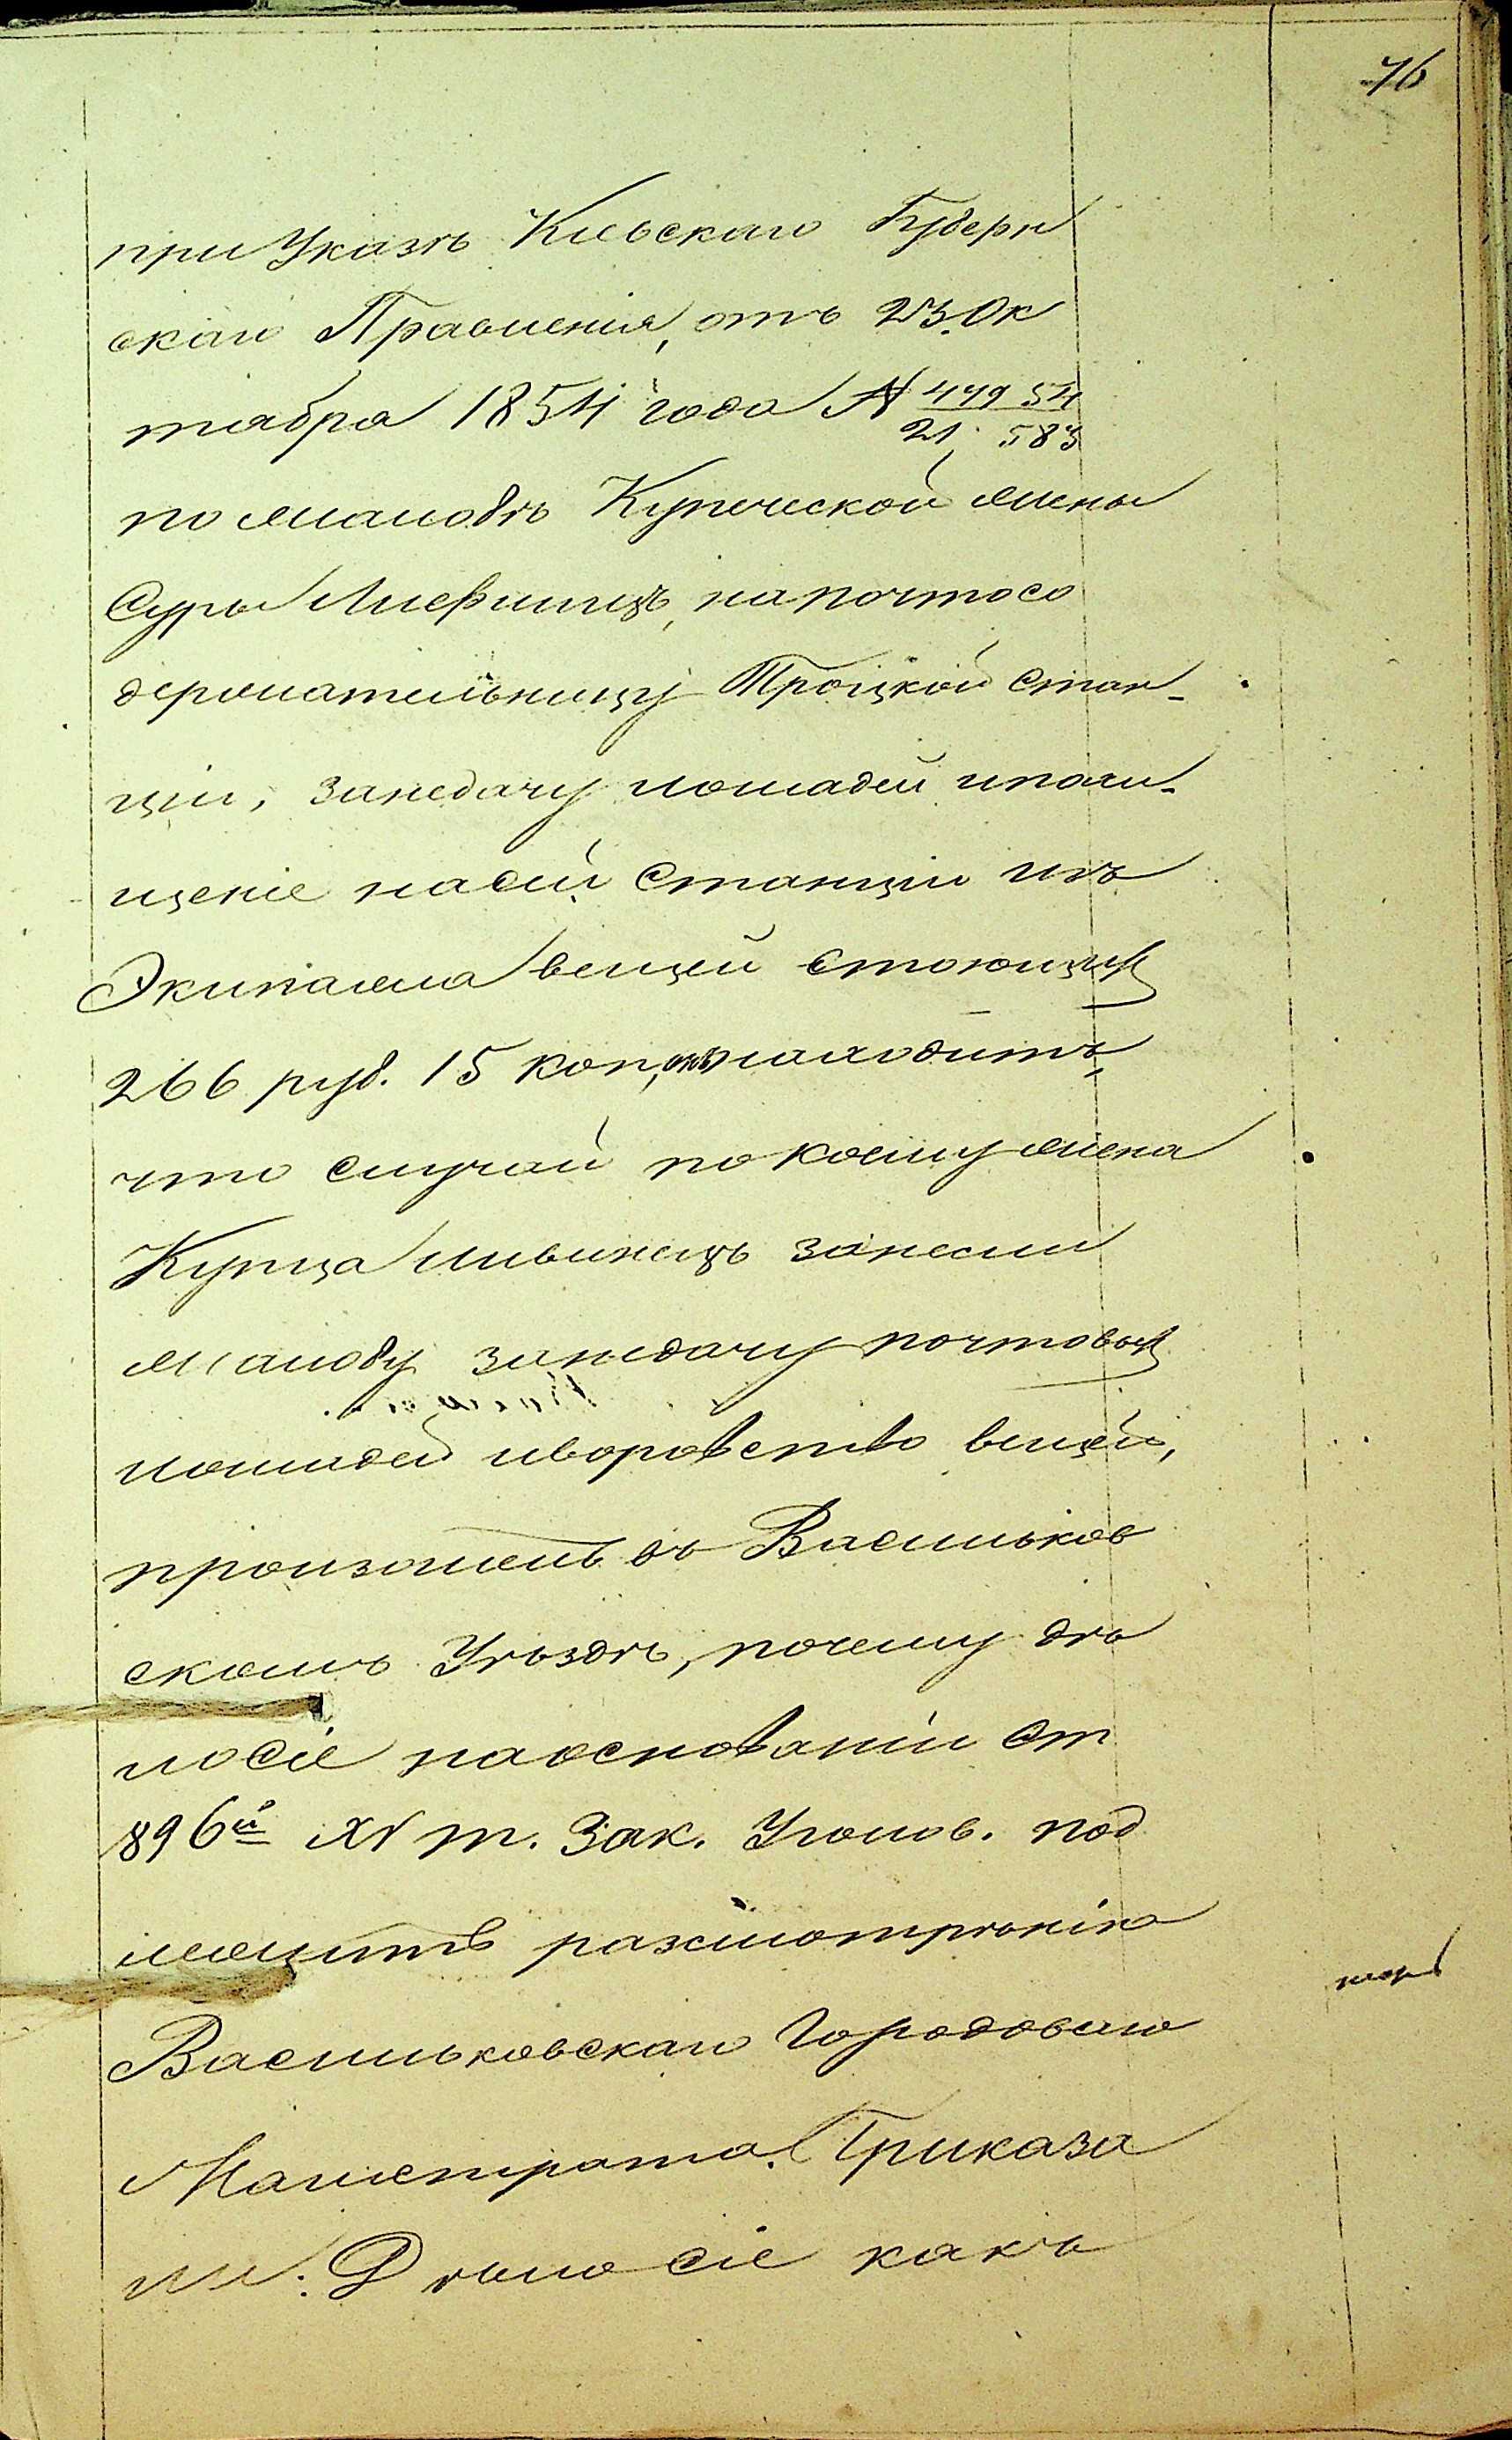 76
при Указѣ Кіевскаго Губерн
скаго Правленія, отъ 23. Ок
тября 1854 года № 44954
21583
по жалобѣ Купеческой жены
Суры Лившицъ, на почтосо
держательницу Троцкой Стан-
ціи, за недачу лошадей и похи-
щеніе на сей Станціи изъ
Экипажа вещей стоющихъ
266 руб. 15 коп, находитъ,
что случай по коему жена
Купца Лившицъ занесла
жалобу за недачу почтовыхъ
лошадей и воровство вещей,
произошелъ въ Васильков
скомъ Уѣздѣ, почему дѣ
ло сіе на основаніи Ст
896й XV т. Зак. Уголов. под
лежитъ разсмотрѣнію
Васильковскаго Городоваго
Магистрата. Приказа
ли: Дѣло сіе какъ